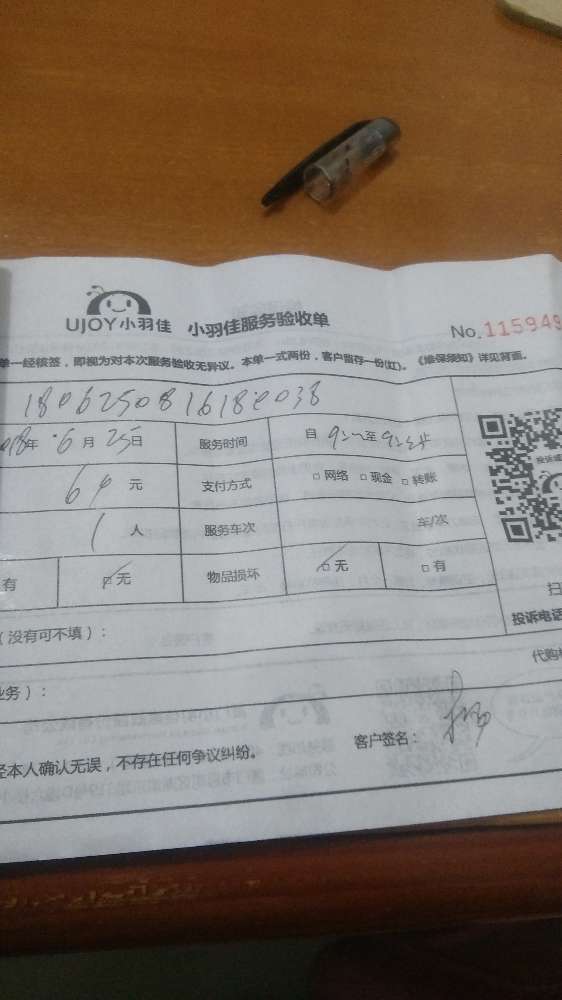 UJOY小羽佳 小羽佳服务验收单 No.115949
单一经核签，即视为对本次服务验收无异议。本单一式两份，客户留存一份(红)。《维保须知》详见背面。
180625081618038
2018年 6月 25日 服务时间 自 至
64 元 支付方式 □ 网络 □ 现金 □ 转账
1 人 服务车次 车/次
有 □ 无 物品损坏 □ 无 □ 有
扫
投诉电话
（没有可不填）：
代购
业务）：
经本人确认无误，不存在任何争议纠纷。 客户签名：